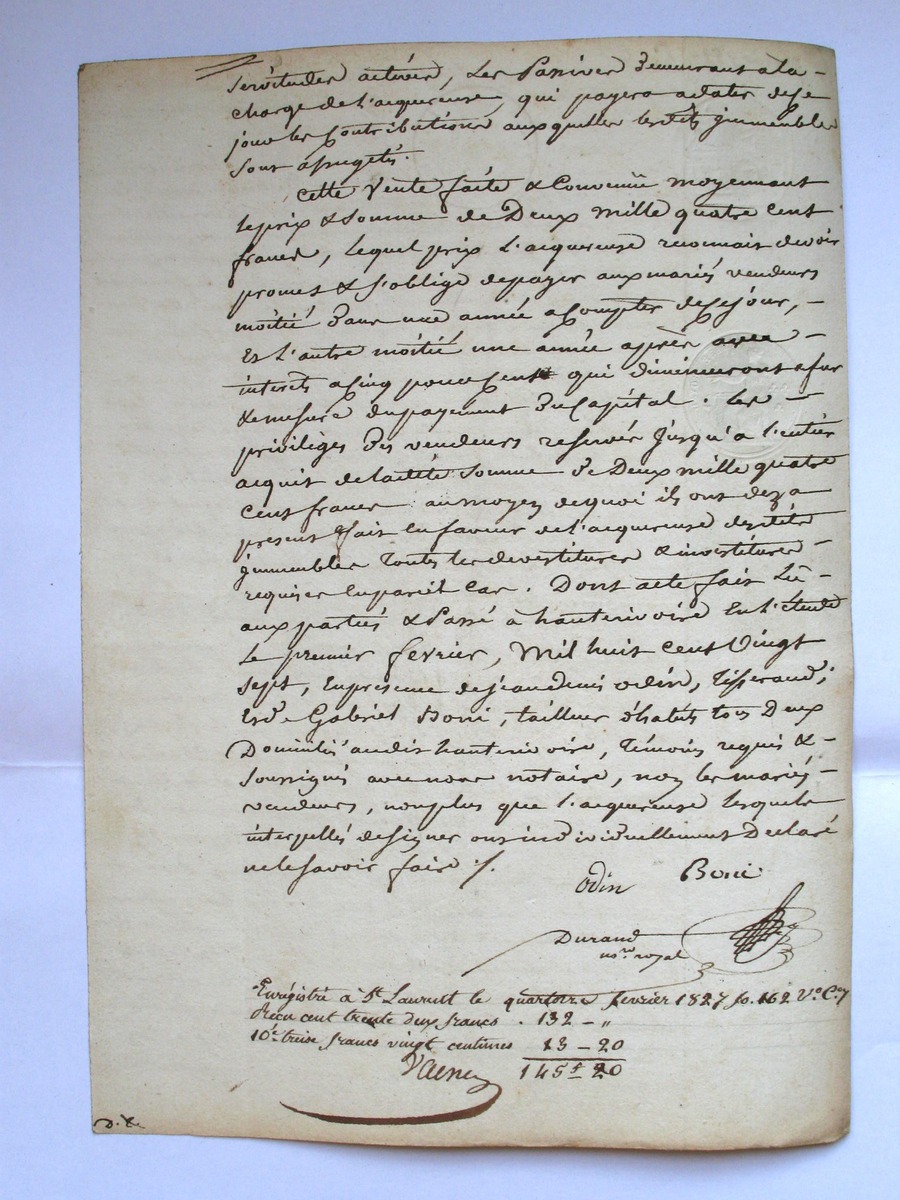 servitudes actives, les Passives demeurant a la -
charge de l'acquereuse, qui payera adater de ce
jour les Contributions auxquelles lesdits jmmeubles
sont assugetis.
Cette Vente faite & Convenüe moyennant
le prix & somme de Deux mille quatre cent
francs, lequel prix l'acquereuse reconnait devoir
promet & s'oblige de payer aux mariés vendeurs
moitié dans une année a Compter de ce jour, -
Et l'autre moitié une année après avec -
interets a Cinq pour Cent qui diminueront a fur
& mesure du payement du Capital. Les -
privilèges des vendeurs reservés jusqu'a l'entier
acquit de ladite somme de Deux mille quatre
Cent francs au moyen de quoi ils ont deza
present fait en faveur de l'acquereuse desdits
jmmeubles toutes les devestitures & investitures -
requises en pareil Cas. Dont acte fait Lû -
aux parties & Passé à hauterivoire En l'étude
Le premier fevrier, Mil huit cent Vingt
sept, En presence de jean denis odin, Tisserand,
Et de Gabriel Boni, tailleur d'habits tous Deux
Domiciliés audit hauterivoire, Témoins requis & -
soussignés avec nous notaire, non les mariés -
vendeurs, non plus que l'acquereuse lesquels
interpellés de signer ont individuellement Declaré
ne le savoir faire ./.
Odin Boni
Durand
no.re royal
Enregistré à St Laurent le quatorze fevrier 1827 fo. 162 Vo. C.e 7
Reçu cent trente deux francs . 132 - "
10e treise francs vingt centimes 13 - 20
145 f 20
D.